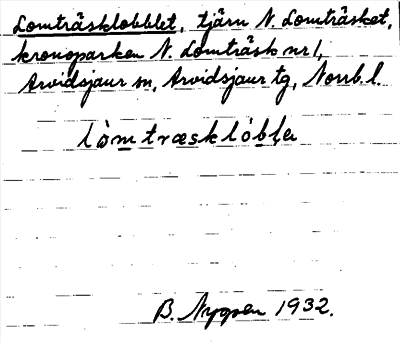 Lomträsklobblet, tjärn N. Lomträsket,
kronoparken N. Lomträsk nr 1,
Arvidsjaur sn, Arvidsjaur tg, Norrb. l.
lòmtræsklòblə
B. Nygren 1932.